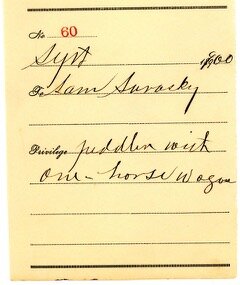 No 60
Sept 1900
To Sam Sarasky
Privilege peddler with
One-horse wagon